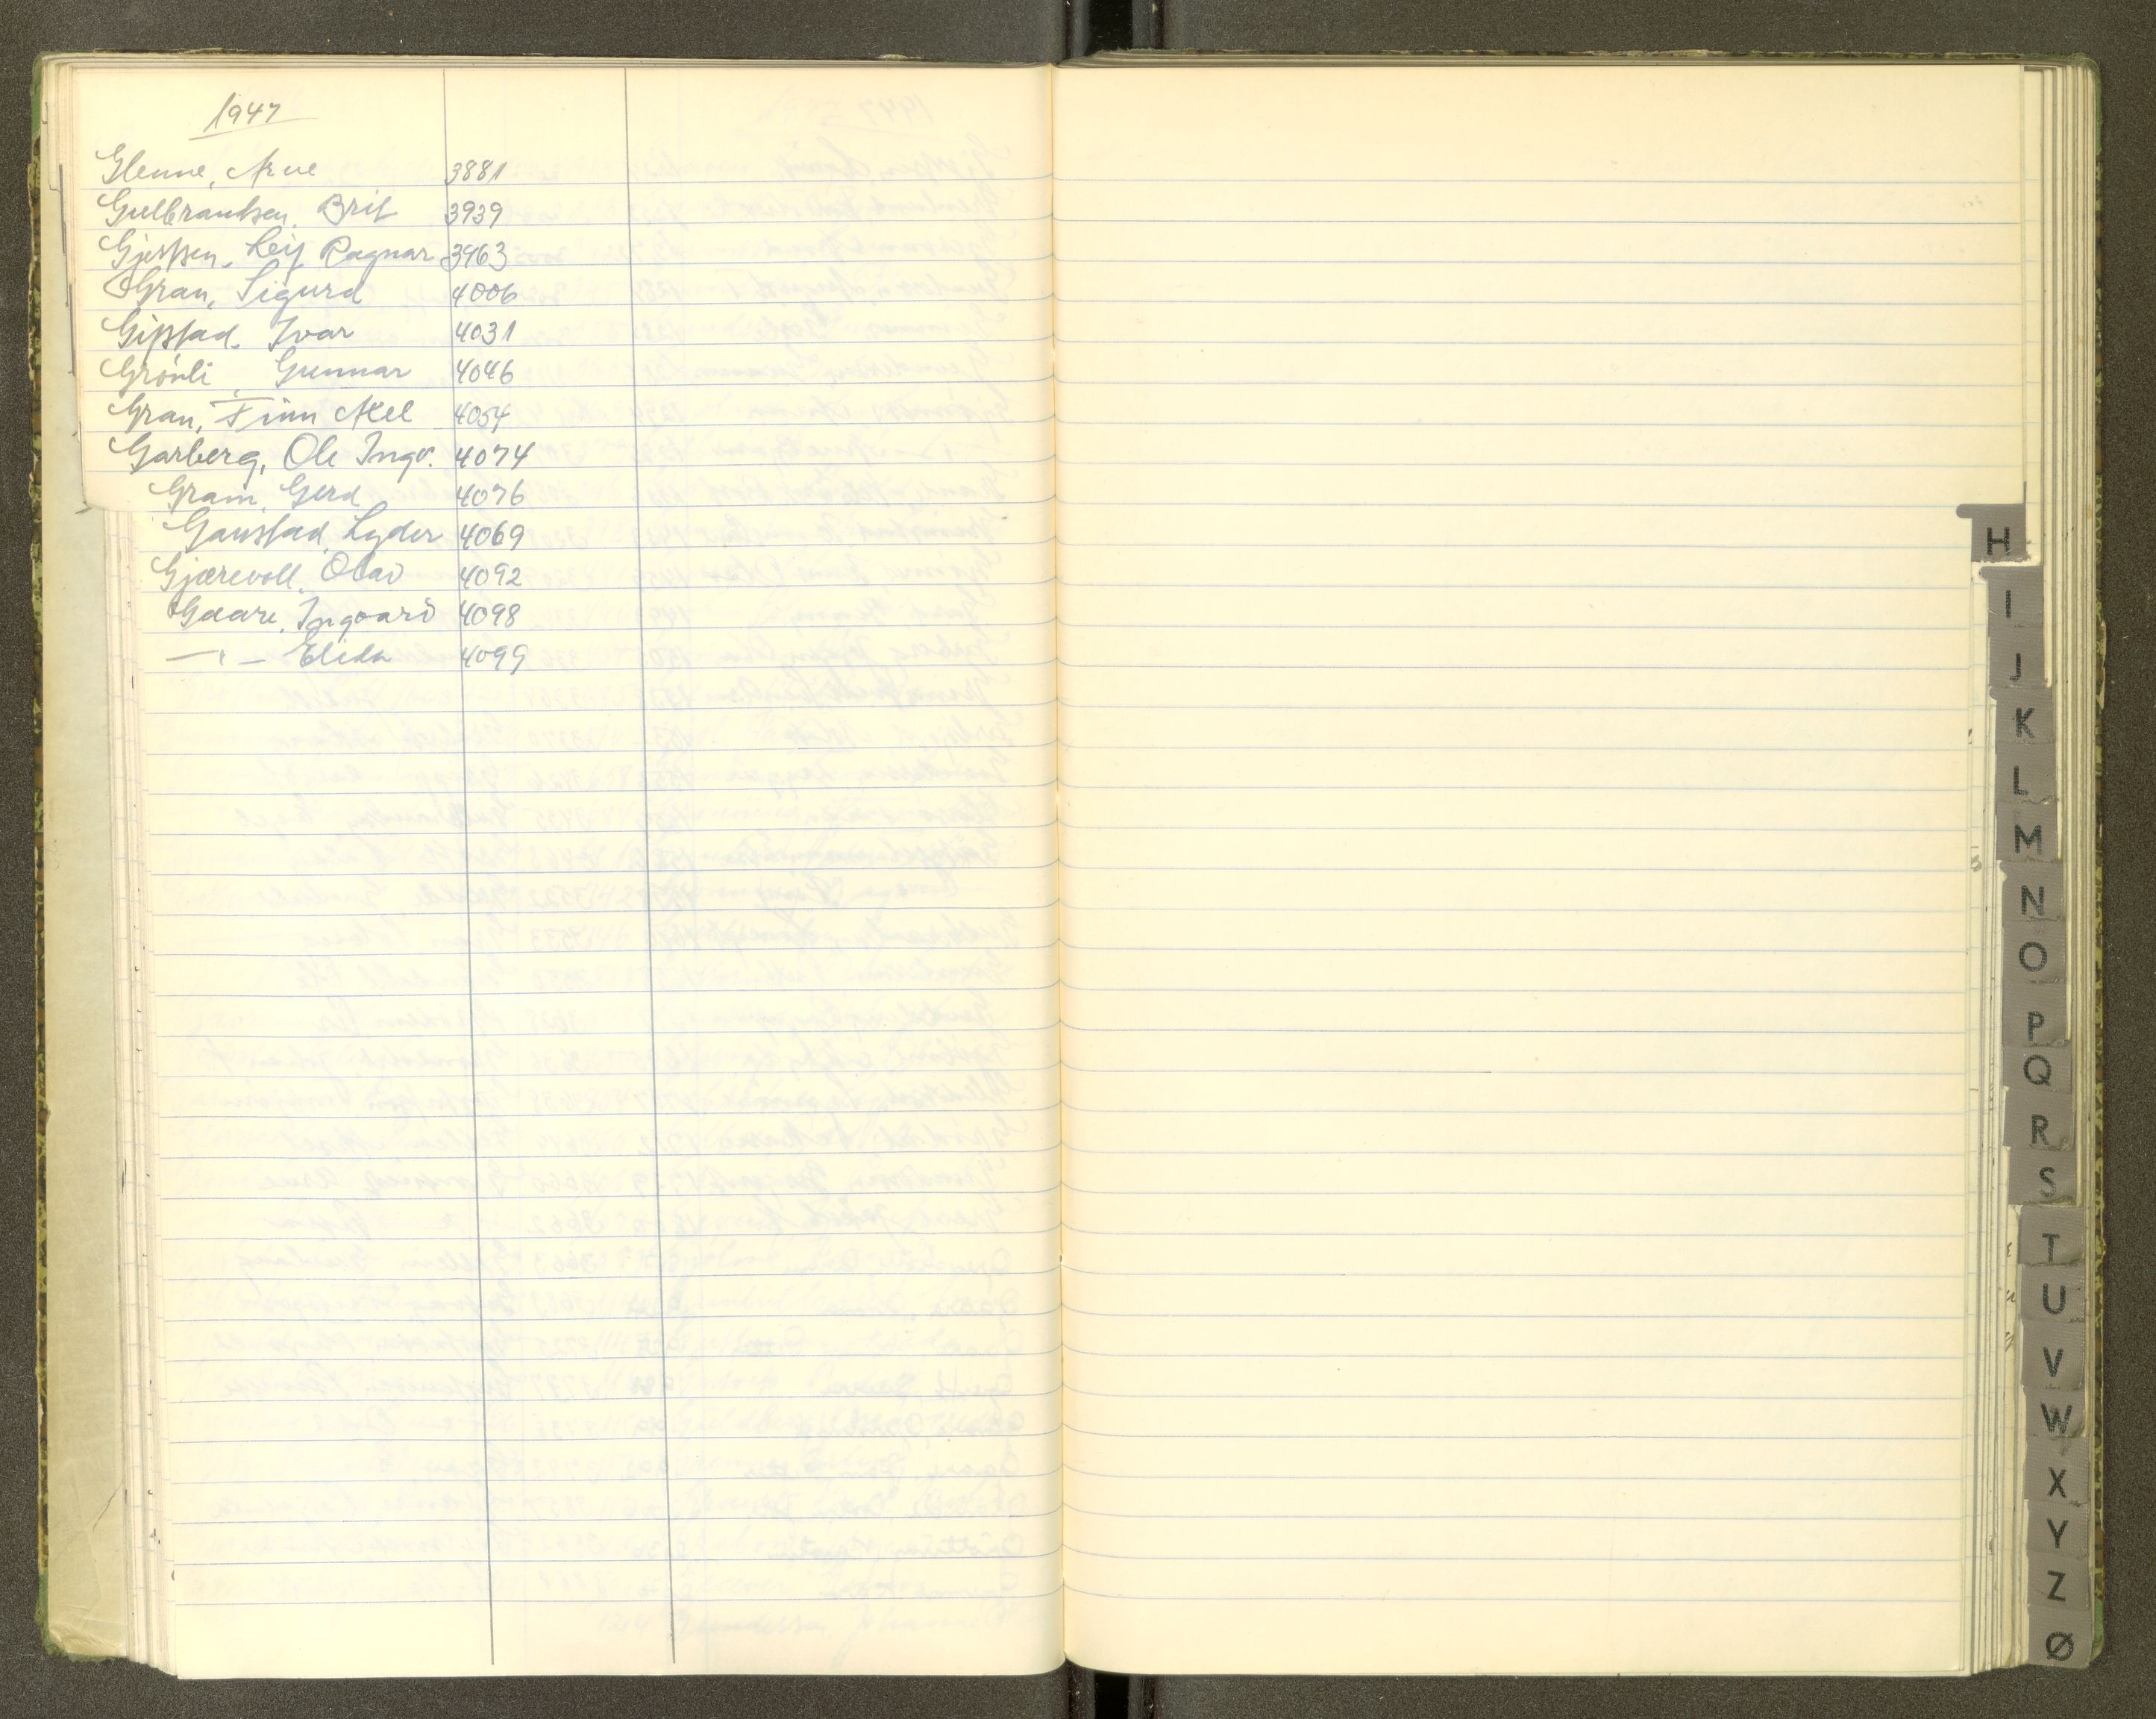 1947
Glenne, Arne 3881
Gulbrandsen, Brit 3939
Gjertsen, Leif Ragnar 3963
Gran, Sigurd 4006
Gipstad, Ivar 4031
Grønli, Gunnar 4046
Gran, Finn Axel 4054
Garberg, Ole Ingv. 4074
Gram, Gerd 4076
Ganstad, Lyder 4069
Gjærevoll, Olav 4092
Gaare, Ingvard 4098
— " — Elida 4099
H
I
J
K
L
M
N
O
P
Q
R
S
T
U
V
W
X
Y
Z
Ø